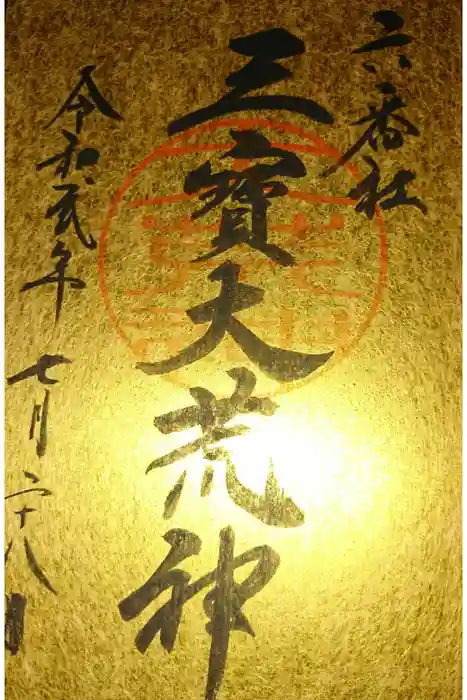 六番社
三寶大荒神
令和弐年
七月二十八日